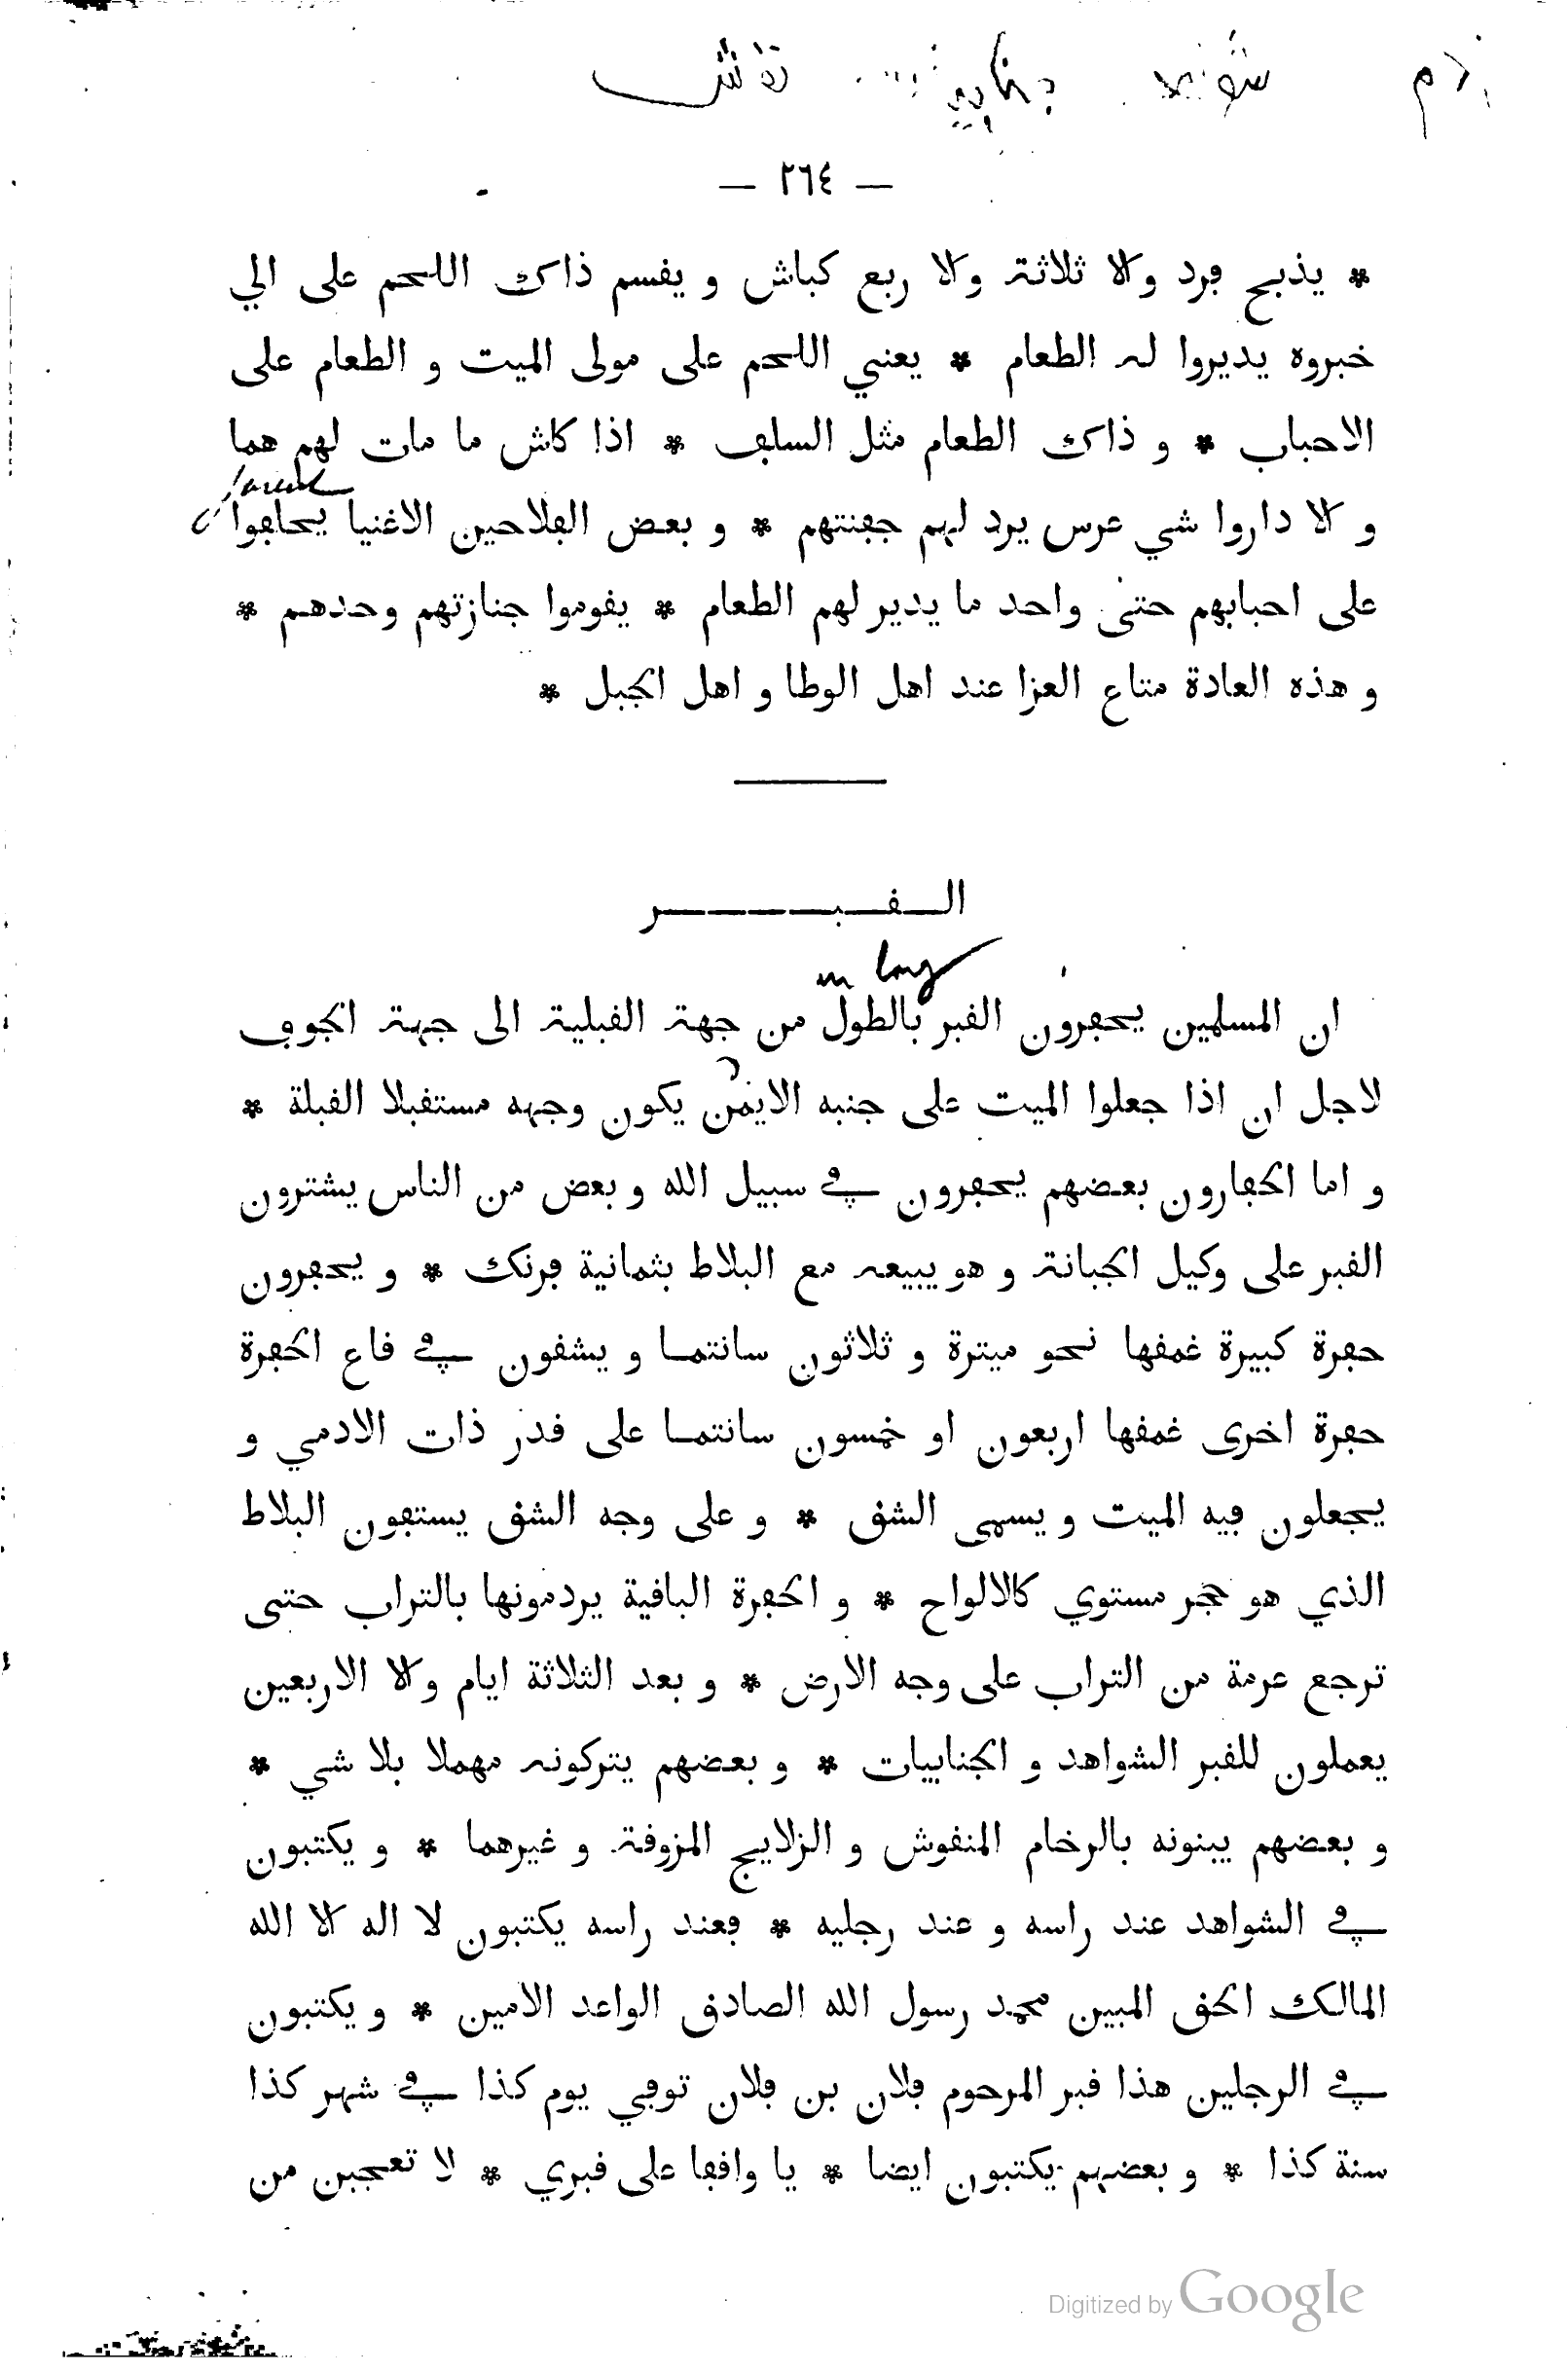 — ٢٦٤ —
* يذبح فرد ولا ثلاثة ولا ربع كباش و يقسم ذاك اللحم على الي
خبروه يديروا له الطعام * يعني اللحم على مولى الميت و الطعام على
الاحباب * و ذاك الطعام مثل السلف * اذا كاش ما مات لهم هما
و لا داروا شي عرس يرد لهم جفنتهم * و بعض الفلاحين الاغنيا يحلفوا
على احبابهم حتى واحد ما يدير لهم الطعام * يقوموا جنازتهم وحدهم *
و هذه العادة متاع العزا عند اهل الوطا و اهل الجبل *
القبر
in long
ان المسلمين يحفرون القبر بالطول من جهة القبلية الى جهة الجوف
لاجل ان اذا جعلوا الميت على جنبه الايمن يكون وجهه مستقبلا القبلة *
و اما الحفارون بعضهم يحفرون في سبيل الله و بعض من الناس يشترون
القبر على وكيل الجبانة و هو يبيعه مع البلاط بثمانية فرنك * و يحفرون
حفرة كبيرة غمقها نحو ميترة و ثلاثون سانتما و يشقون في قاع الحفرة
حفرة اخرى غمقها اربعون او خمسون سانتما على قدر ذات الادمي و
يجعلون فيه الميت و يسمى الشق * و على وجه الشق يستفون البلاط
الذي هو حجر مستوي كالالواح * و الحفرة الباقية يردمونها بالتراب حتى
ترجع عرمة من التراب على وجه الارض * و بعد الثلاثة ايام ولا الاربعين
يعملون للقبر الشواهد و الجنابيات * و بعضهم يتركونه مهملا بلا شي *
و بعضهم يبنونه بالرخام المنقوش و الزلايج المزوقة و غيرهما * و يكتبون
في الشواهد عند راسه و عند رجليه * فعند راسه يكتبون لا اله الا الله
المالك الحق المبين محمد رسول الله الصادق الواعد الامين * و يكتبون
في الرجلين هذا قبر المرحوم فلان بن فلان توفي يوم كذا في شهر كذا
سنة كذا * و بعضهم يكتبون ايضا * يا واقفا على قبري * لا تعجبن من
Digitized by Google